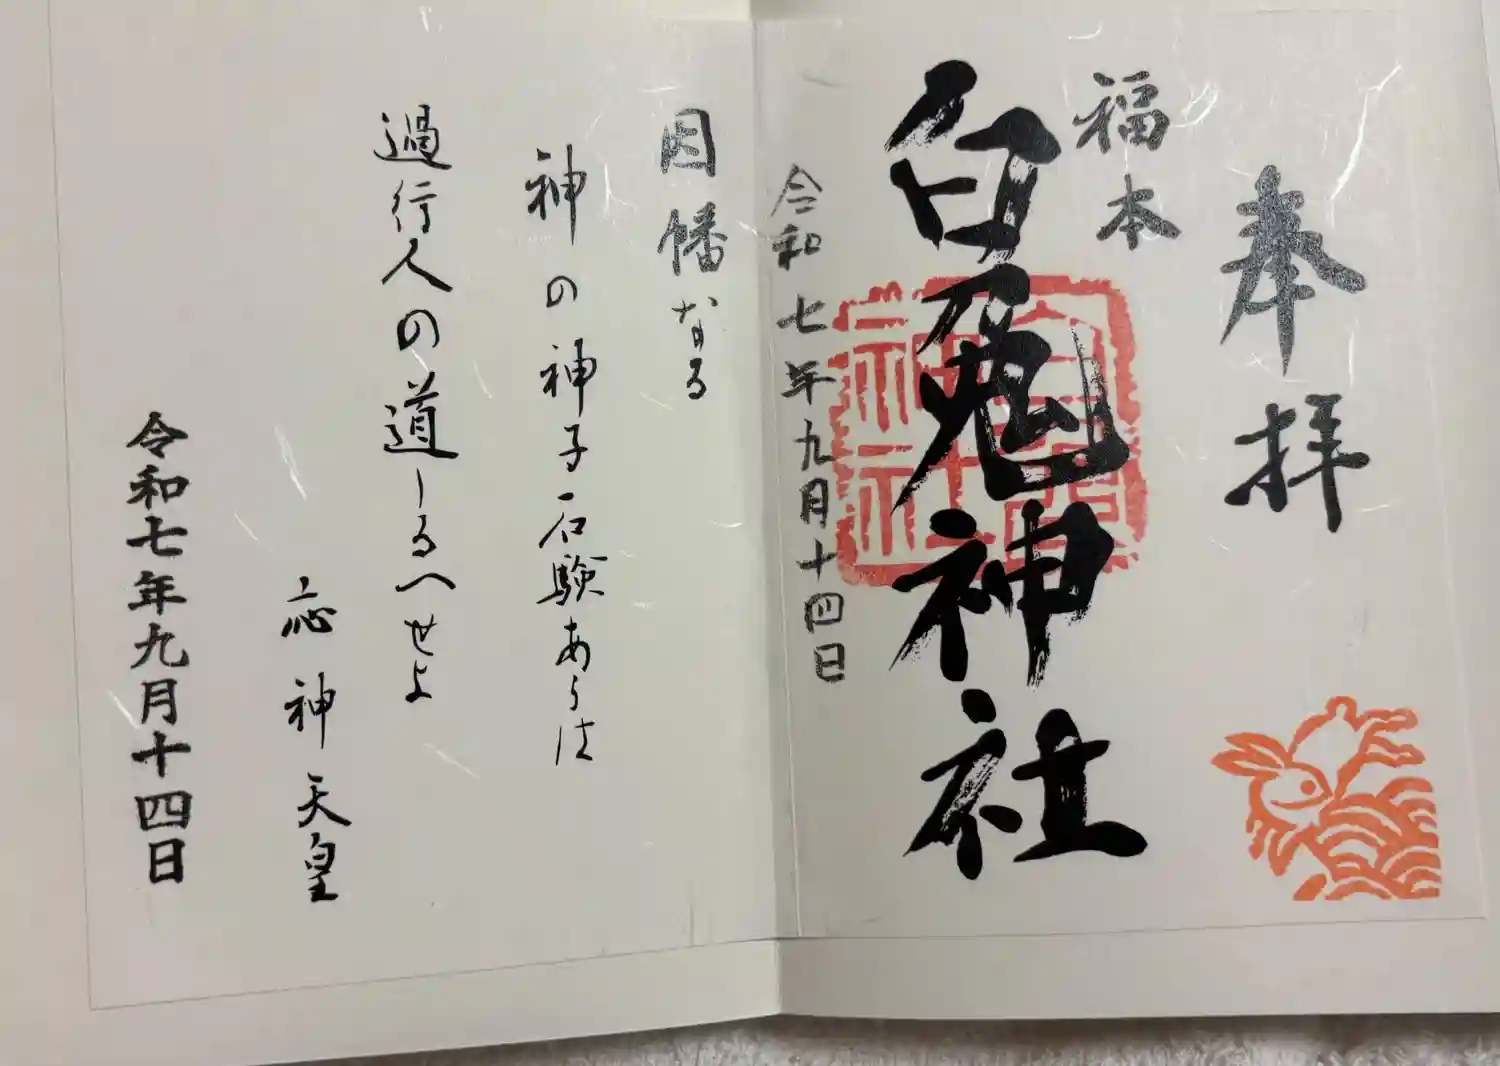 奉拝
福本
白兎神社
白兎神社
令和七年九月十四日
因幡なる
神の神子石験あらは
過行人の道しるへせよ
応神天皇
令和七年九月十四日